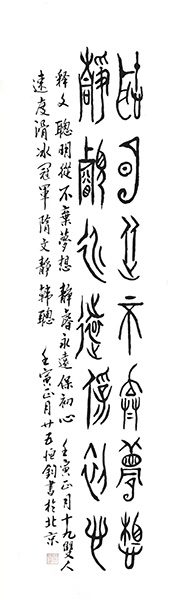 聰明從不棄夢想
靜睿永遠保初心
釋文 聰明從不棄夢想 靜睿永遠保初心 壬寅正月十九雙人
速度滑冰冠軍隋文靜 韓聰 壬寅正月廿五恒鈞書於北京